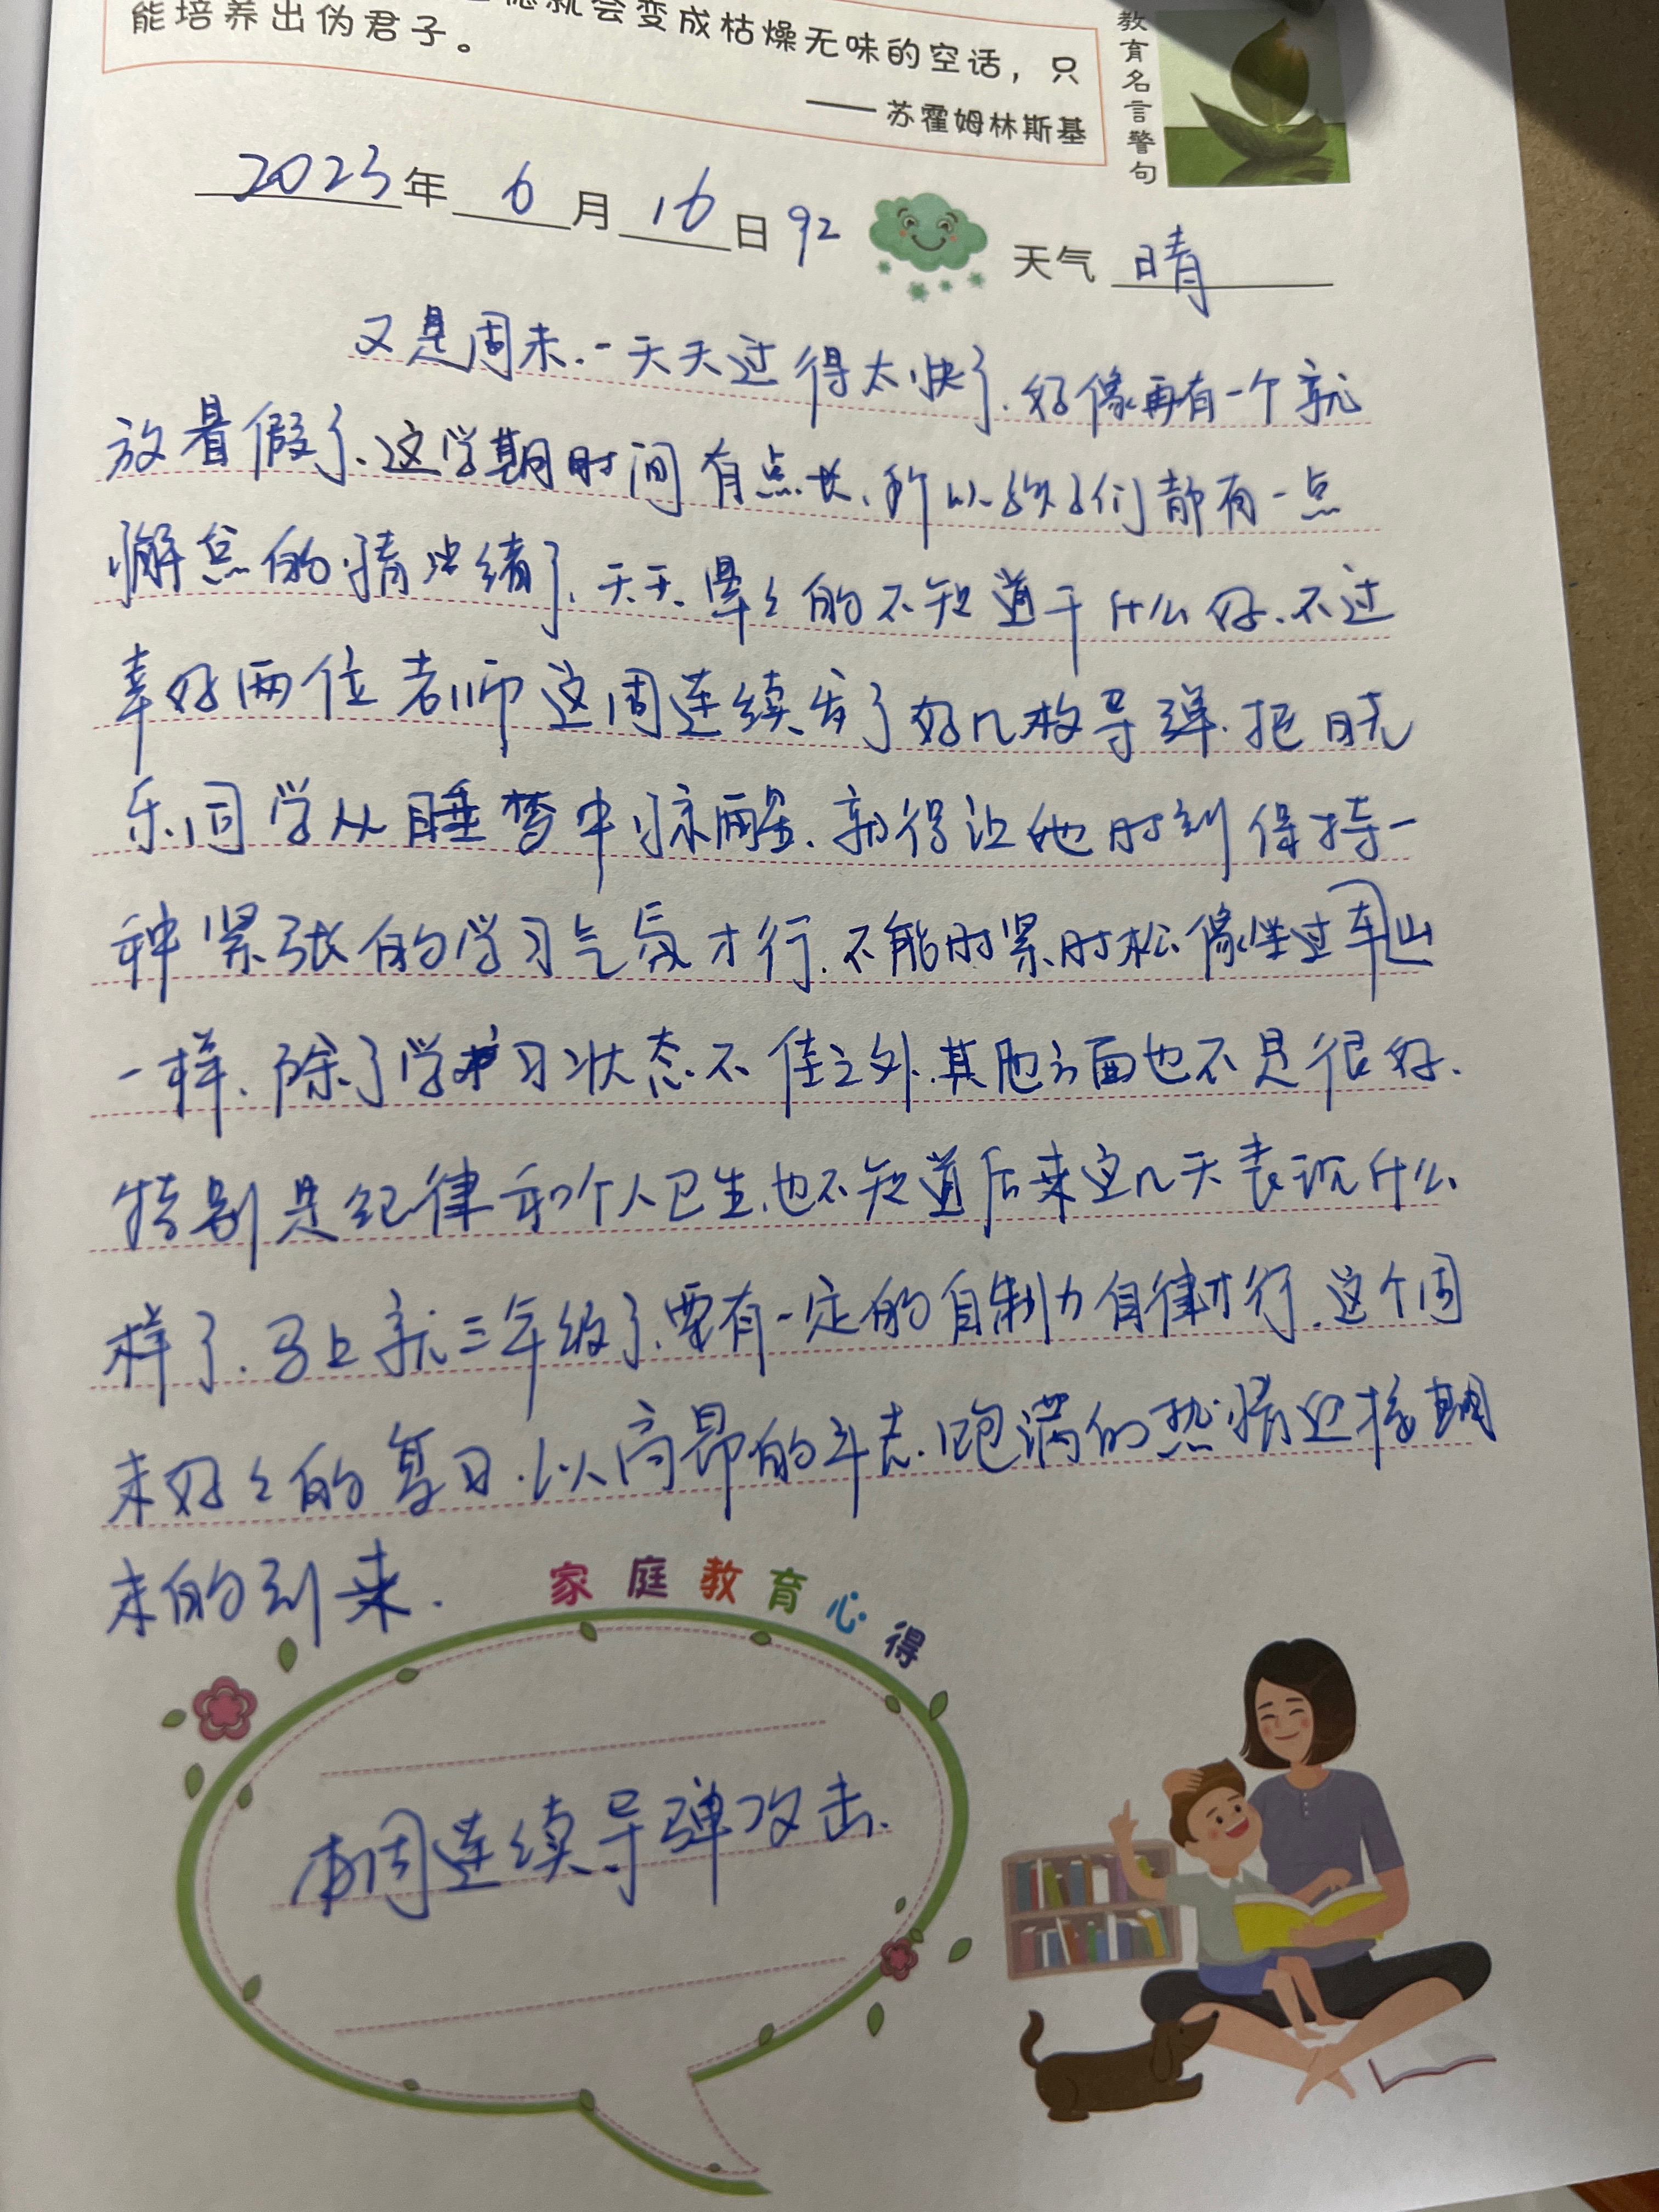 德就会变成枯燥无味的空话，只
能培养出伪君子。
——苏霍姆林斯基
教育名言警句
2023年 6月 16日 92 天气 晴
又是周末.一天天过得太快了.好像再有一个就
放暑假了、这学期时间有点长、所以孩子们都有一点
懈怠的情绪了、天天晕々的不知道干什么好.不过
幸好两位老师这周连续发了好几枚导弹.把
乐同学从睡梦中惊醒.就得让他时刻保持一
种紧张的学习气氛才行.不能时紧时松像坐过车山
一样、除了学习状态不佳之外.其他方面也不是很好.
特别是纪律和个人卫生.也不知道后来这几天表现什么
样了.马上就三年级了、要有一定的自制力自律才行.这个周
末好々的复习.以高昂的斗志.饱满的热情迎接期
末的到来.
家庭教育心得
本周连续导弹攻击.